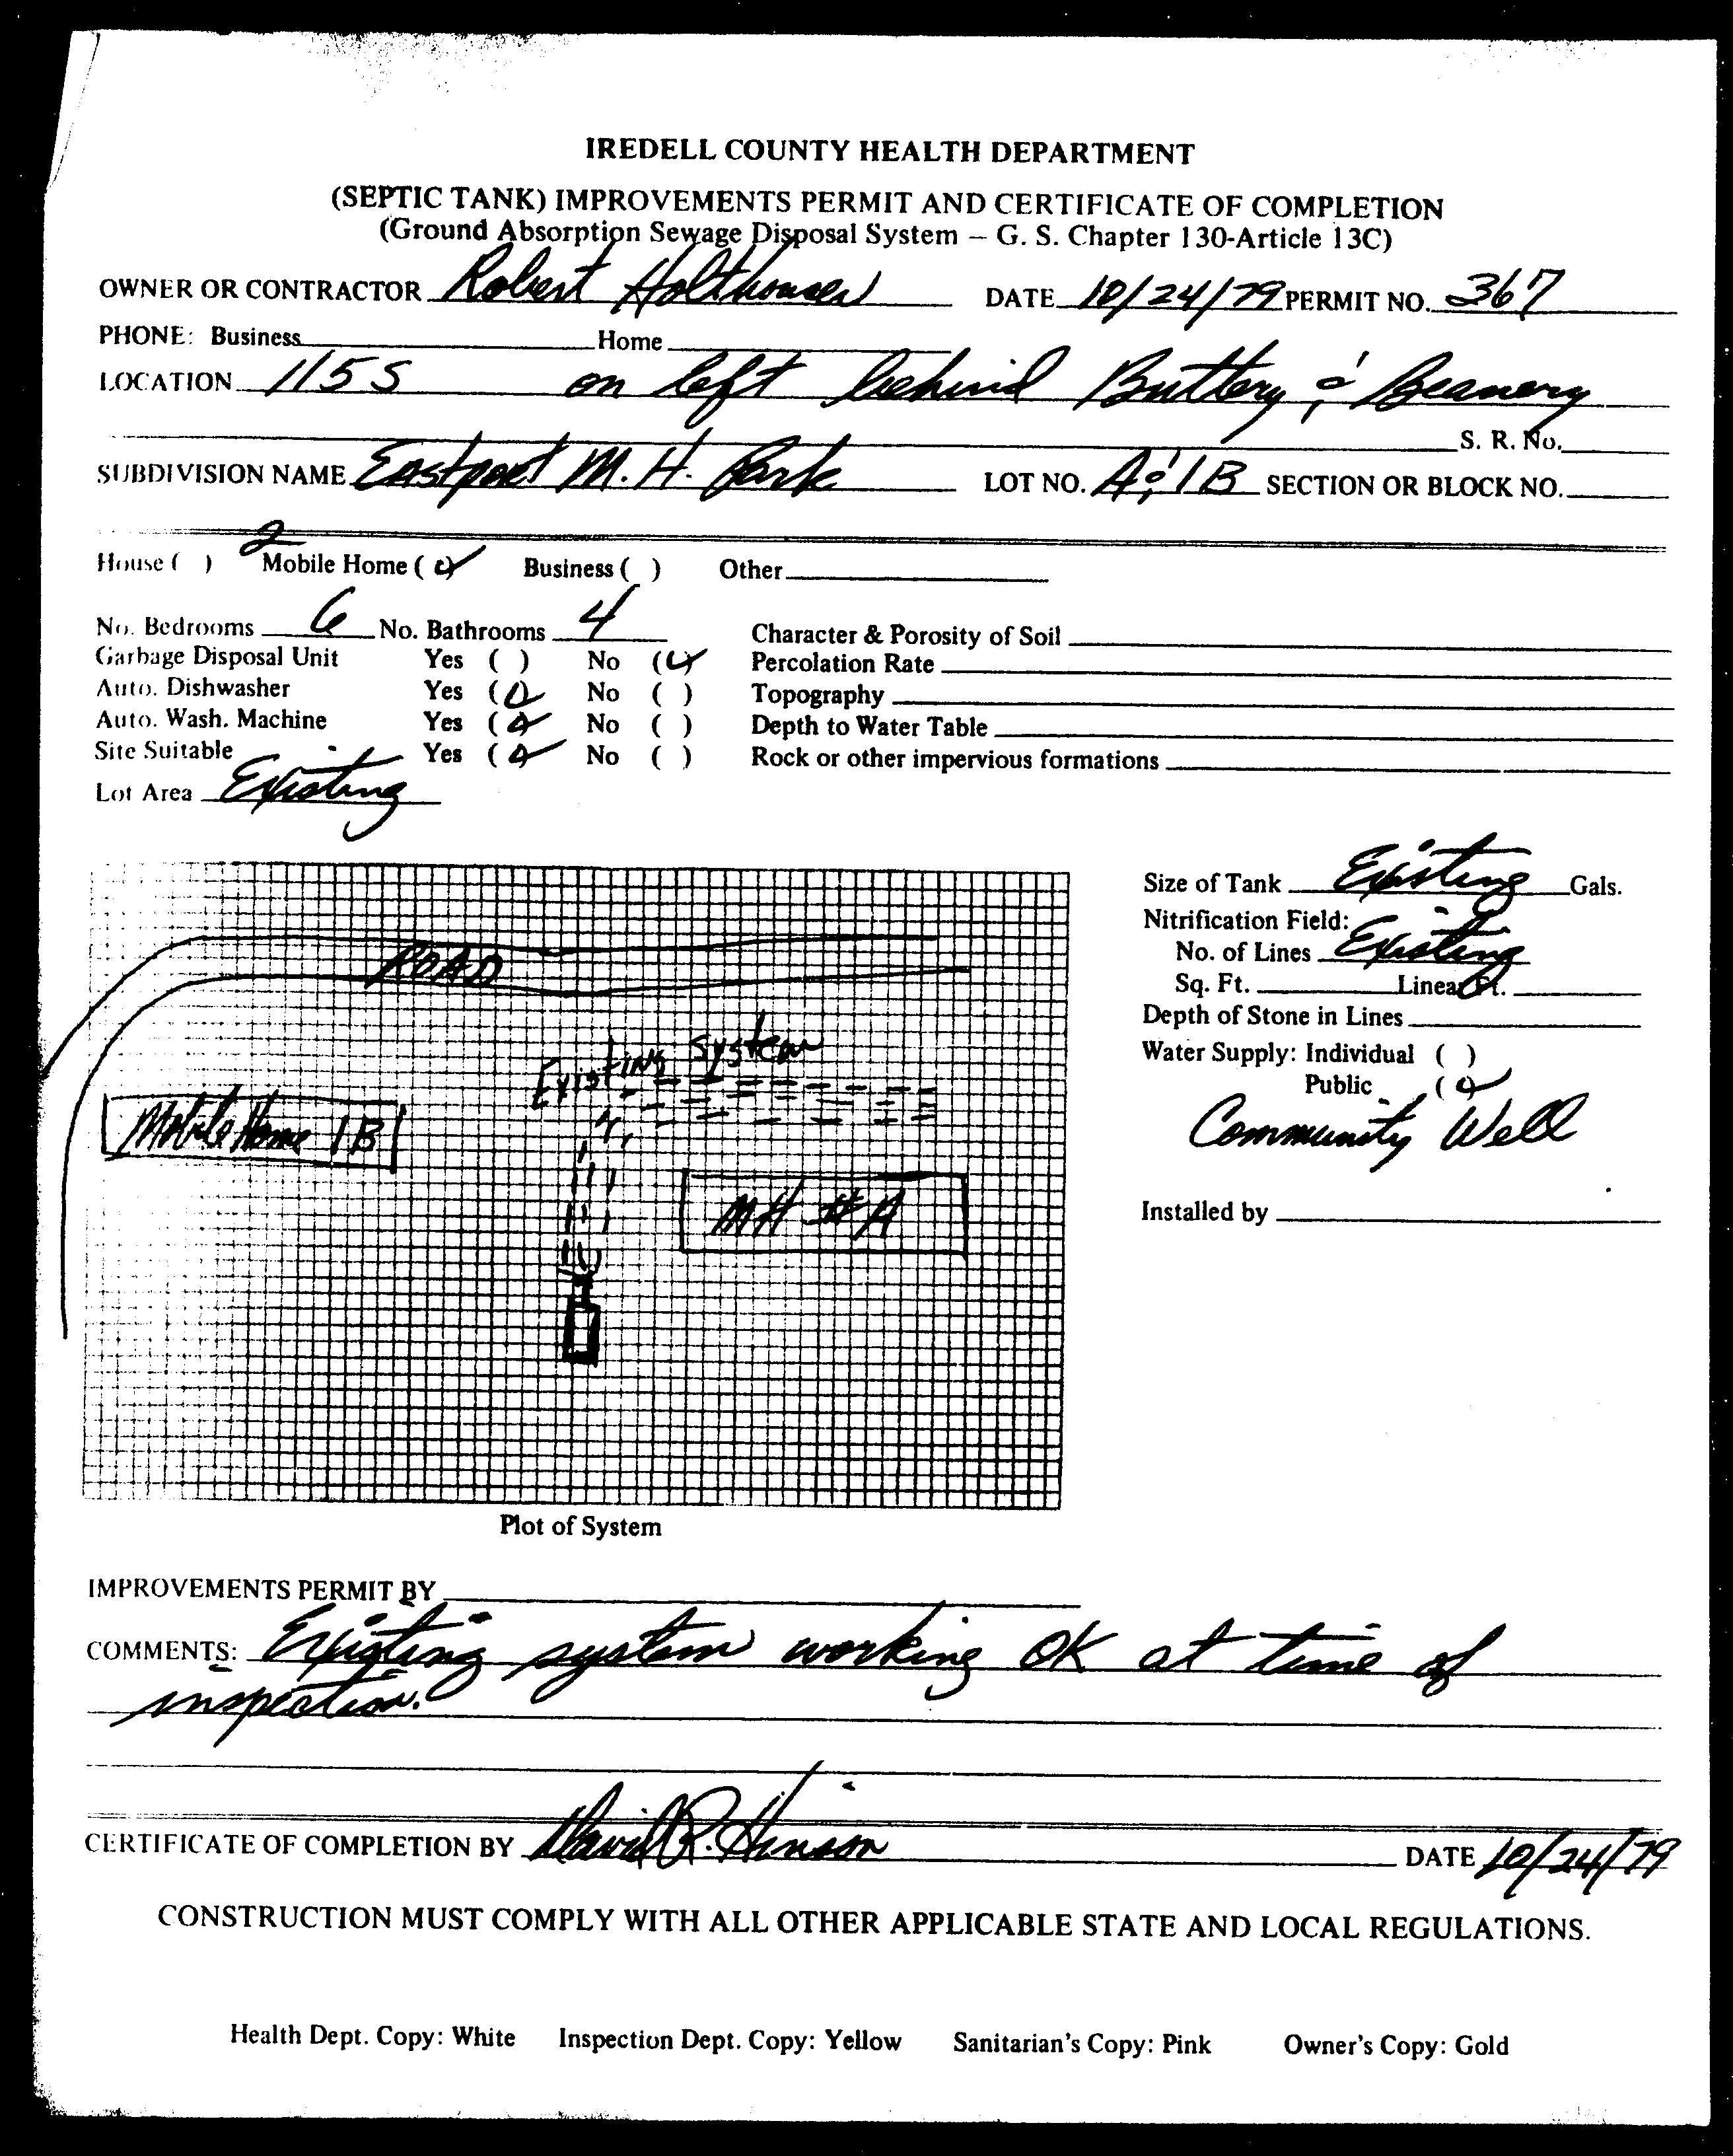 IREDELL COUNTY HEALTH DEPARTMENT
(SEPTIC TANK) IMPROVEMENTS PERMIT AND CERTIFICATE OF COMPLETION
(Ground Absorption Sewage Disposal System – G. S. Chapter 130-Article 13C)
OWNER OR CONTRACTOR Robert Holthouser DATE 10/24/79 PERMIT NO. 367
PHONE: Business Home
LOCATION 115 S on left behind Buttery & Beanery
S. R. No.
SUBDIVISION NAME Eastport M. H. Park LOT NO. A & 1B SECTION OR BLOCK NO.
House ( ) 2 Mobile Home (✓) Business ( ) Other
No. Bedrooms 6 No. Bathrooms 4 Character & Porosity of Soil
Garbage Disposal Unit Yes ( ) No (✓) Percolation Rate
Auto. Dishwasher Yes (✓) No ( ) Topography
Auto. Wash. Machine Yes (✓) No ( ) Depth to Water Table
Site Suitable Yes (✓) No ( ) Rock or other impervious formations
Lot Area Existing
Size of Tank Existing Gals.
Nitrification Field:
No. of Lines Existing
Sq. Ft. Linear Ft.
Depth of Stone in Lines
Water Supply: Individual ( )
Public (✓)
Community Well
Installed by
ROAD
Existing System
Mobile Home 1B
MH #A
Plot of System
IMPROVEMENTS PERMIT BY
COMMENTS: Existing system working OK at time of
inspection.
CERTIFICATE OF COMPLETION BY David R. Hinson DATE 10/24/79
CONSTRUCTION MUST COMPLY WITH ALL OTHER APPLICABLE STATE AND LOCAL REGULATIONS.
Health Dept. Copy: White Inspection Dept. Copy: Yellow Sanitarian's Copy: Pink Owner's Copy: Gold